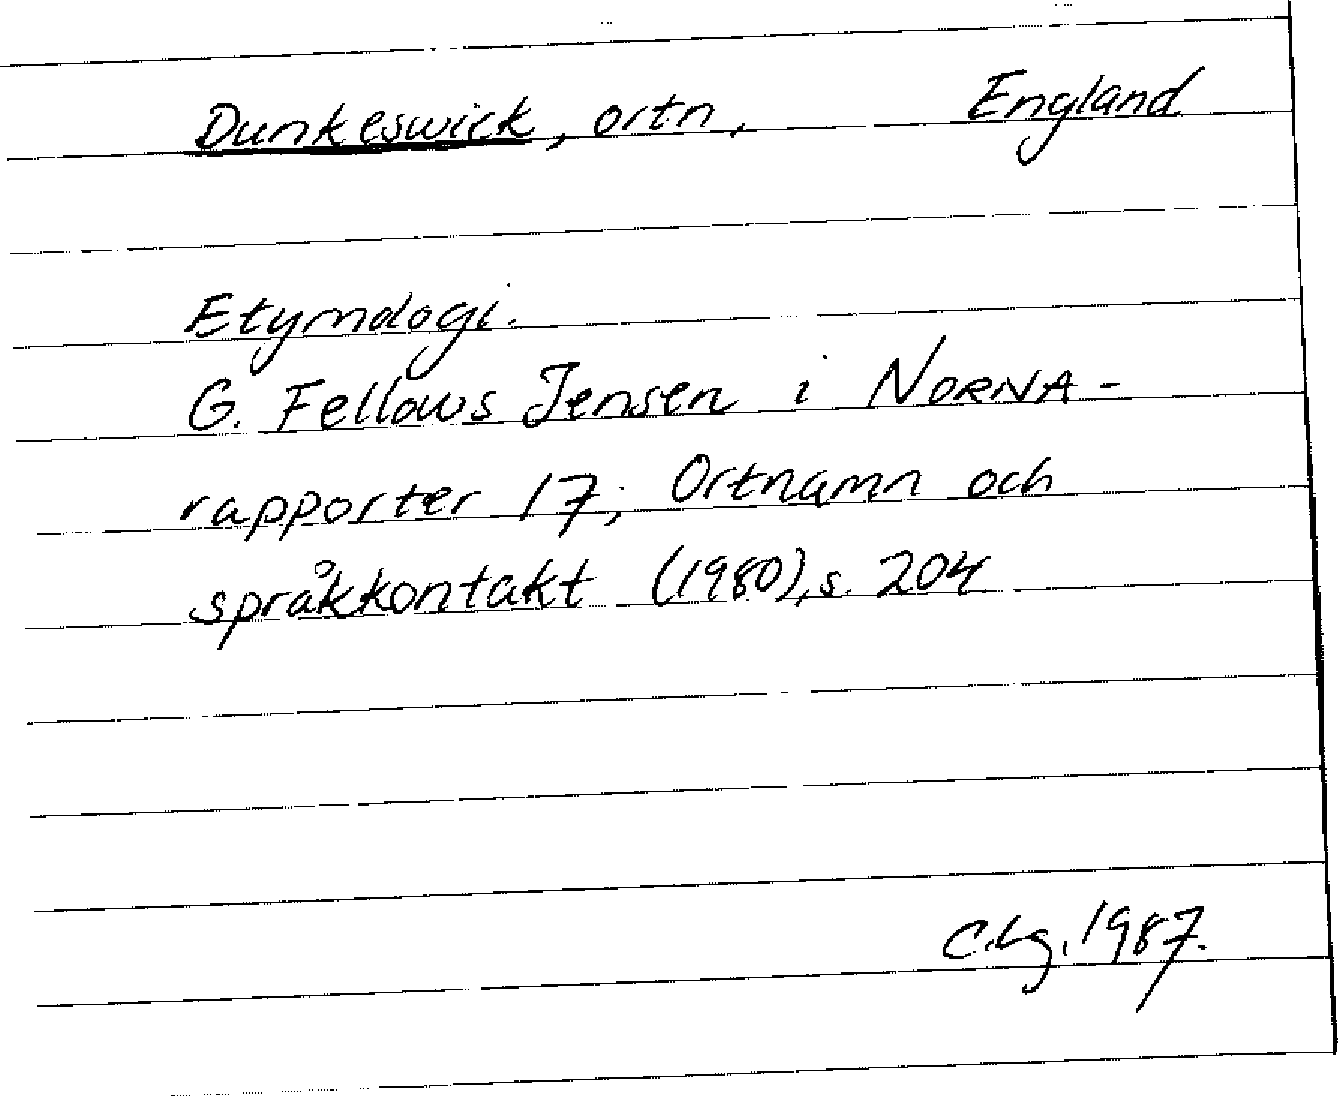 Dunkeswick, ortn, England
Etymologi.
G. Fellows Jensen i NORNA-
rapporter 17; Ortnamn och
språkkontakt (1980), s. 204
C.Lg. 1987.